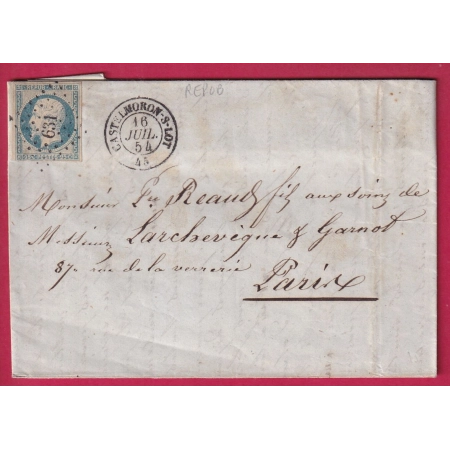 REPUB
REPUB FRANC
631
CASTELMORON-S-LOT
16
JUIL.
54
45
Monsieur Reaud fils aux soins de
Messieurs Larchevèque & Garnot
87 rue de la verrerie
Paris